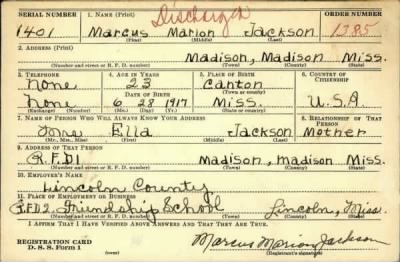 SERIAL NUMBER 1. NAME (Print) Discharged ORDER NUMBER
1401 Marcus Marion Jackson 1385
(First) (Middle) (Last)
2. ADDRESS (Print)
Madison, Madison Miss.
(Number and street or R. F. D. number) (Town) (County) (State)
3. TELEPHONE 4. AGE IN YEARS 5. PLACE OF BIRTH 6. COUNTRY OF CITIZENSHIP
None 23 Canton
DATE OF BIRTH (Town or county)
None 6 28 1917 Miss. U.S.A.
(Exchange) (Number) (Mo.) (Day) (Yr.) (State or country)
7. NAME OF PERSON WHO WILL ALWAYS KNOW YOUR ADDRESS 8. RELATIONSHIP OF THAT PERSON
Mrs. Ella Jackson Mother
(Mr., Mrs., Miss) (First) (Middle) (Last)
9. ADDRESS OF THAT PERSON
R.F.D1 Madison, Madison Miss.
(Number and street or R. F. D. number) (Town) (County) (State)
10. EMPLOYER'S NAME
Lincoln County
11. PLACE OF EMPLOYMENT OR BUSINESS
R.F.D2. Friendship School Lincoln, Miss.
(Number and street or R. F. D. number) (Town) (County) (State)
I AFFIRM THAT I HAVE VERIFIED ABOVE ANSWERS AND THAT THEY ARE TRUE.
REGISTRATION CARD
D. S. S. Form 1 (over) Marcus Marion Jackson
(Registrant's signature)